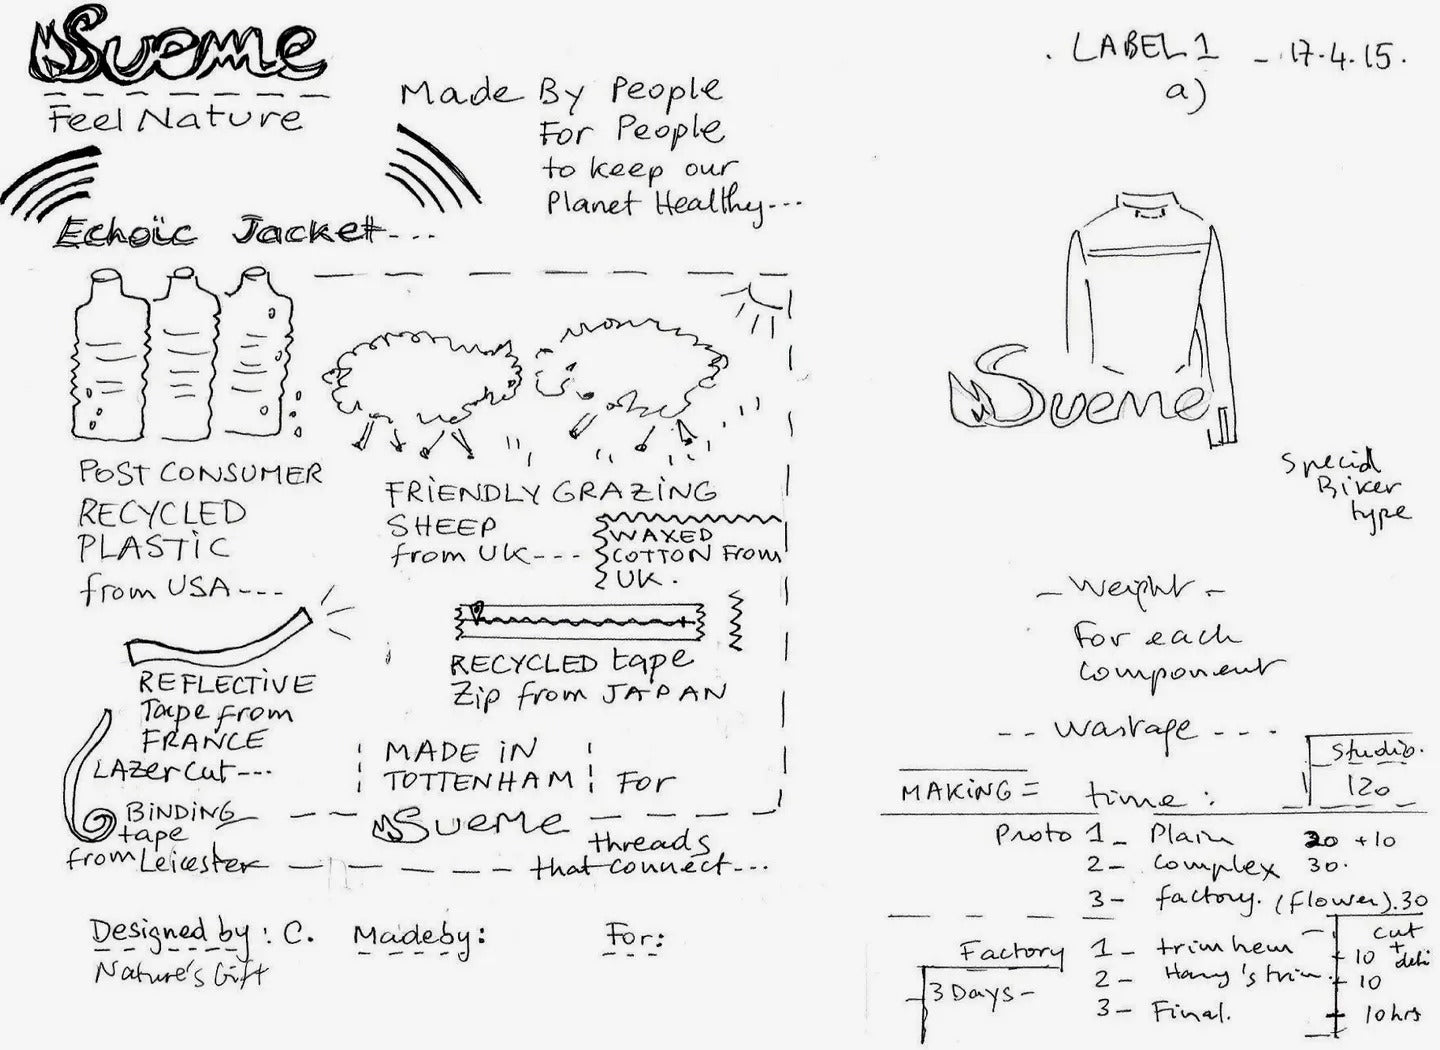 Sueme
Feel Nature
Made By People
For People
to keep our
Planet Healthy---
Echoïc Jacket---
POST CONSUMER
RECYCLED
PLASTIC
from USA---
FRIENDLY GRAZING
SHEEP
from UK---
WAXED
COTTON From
UK.
REFLECTIVE
Tape from
FRANCE
LAZer Cut---
RECYCLED tape
Zip from JAPAN
BINDING
tape
from Leicester
MADE IN
TOTTENHAM
For
Sueme
threads
that connect---
Designed by: C.
Nature's Gift
Made by:
For:
. LABEL 1 - 17.4.15.
a)
Sueme
Special
Biker
type
- Weight -
For each
component
-- wastage ---
MAKING = time:
Studio.
120
Proto 1- Plain 20 +10
2- Complex 30.
3- factory. (flower).30
Factory 1- trim hem
2- trim.
3- Final.
3 Days-
cut
+
10
10
10 hrs